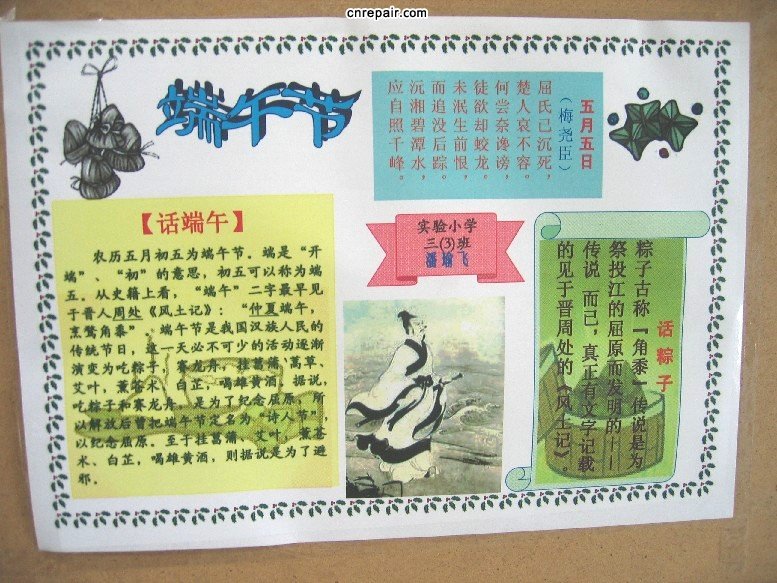 cnrepair.com
端午节
五月五日
（梅尧臣）
屈氏已沉死，
楚人哀不容。
何尝奈谗谤，
徒欲却蛟龙。
未泯生前恨，
而追没后踪。
沅湘碧潭水，
应自照千峰。
【话端午】
农历五月初五为端午节。端是“开
端”、“初”的意思，初五可以称为端
五。从史籍上看，“端午”二字最早见
于晋人周处《风土记》：“仲夏端午，
烹鹜角黍”。端午节是我国汉族人民的
传统节日，这一天必不可少的活动逐渐
演变为吃粽子，赛龙舟，挂菖蒲、蒿草、
艾叶，薰苍术、白芷，喝雄黄酒。据说，
吃粽子和赛龙舟，是为了纪念屈原，所
以解放后曾把端午节定名为“诗人节”，
以纪念屈原。至于挂菖蒲、艾叶，薰苍
术、白芷，喝雄黄酒，则据说是为了避
邪。
实验小学
三(3)班
飞
话粽子
粽子古称「角黍」传说是为
祭投江的屈原而发明的——
传说 而已，真正有文字记载
的见于晋周处的《风土记》。